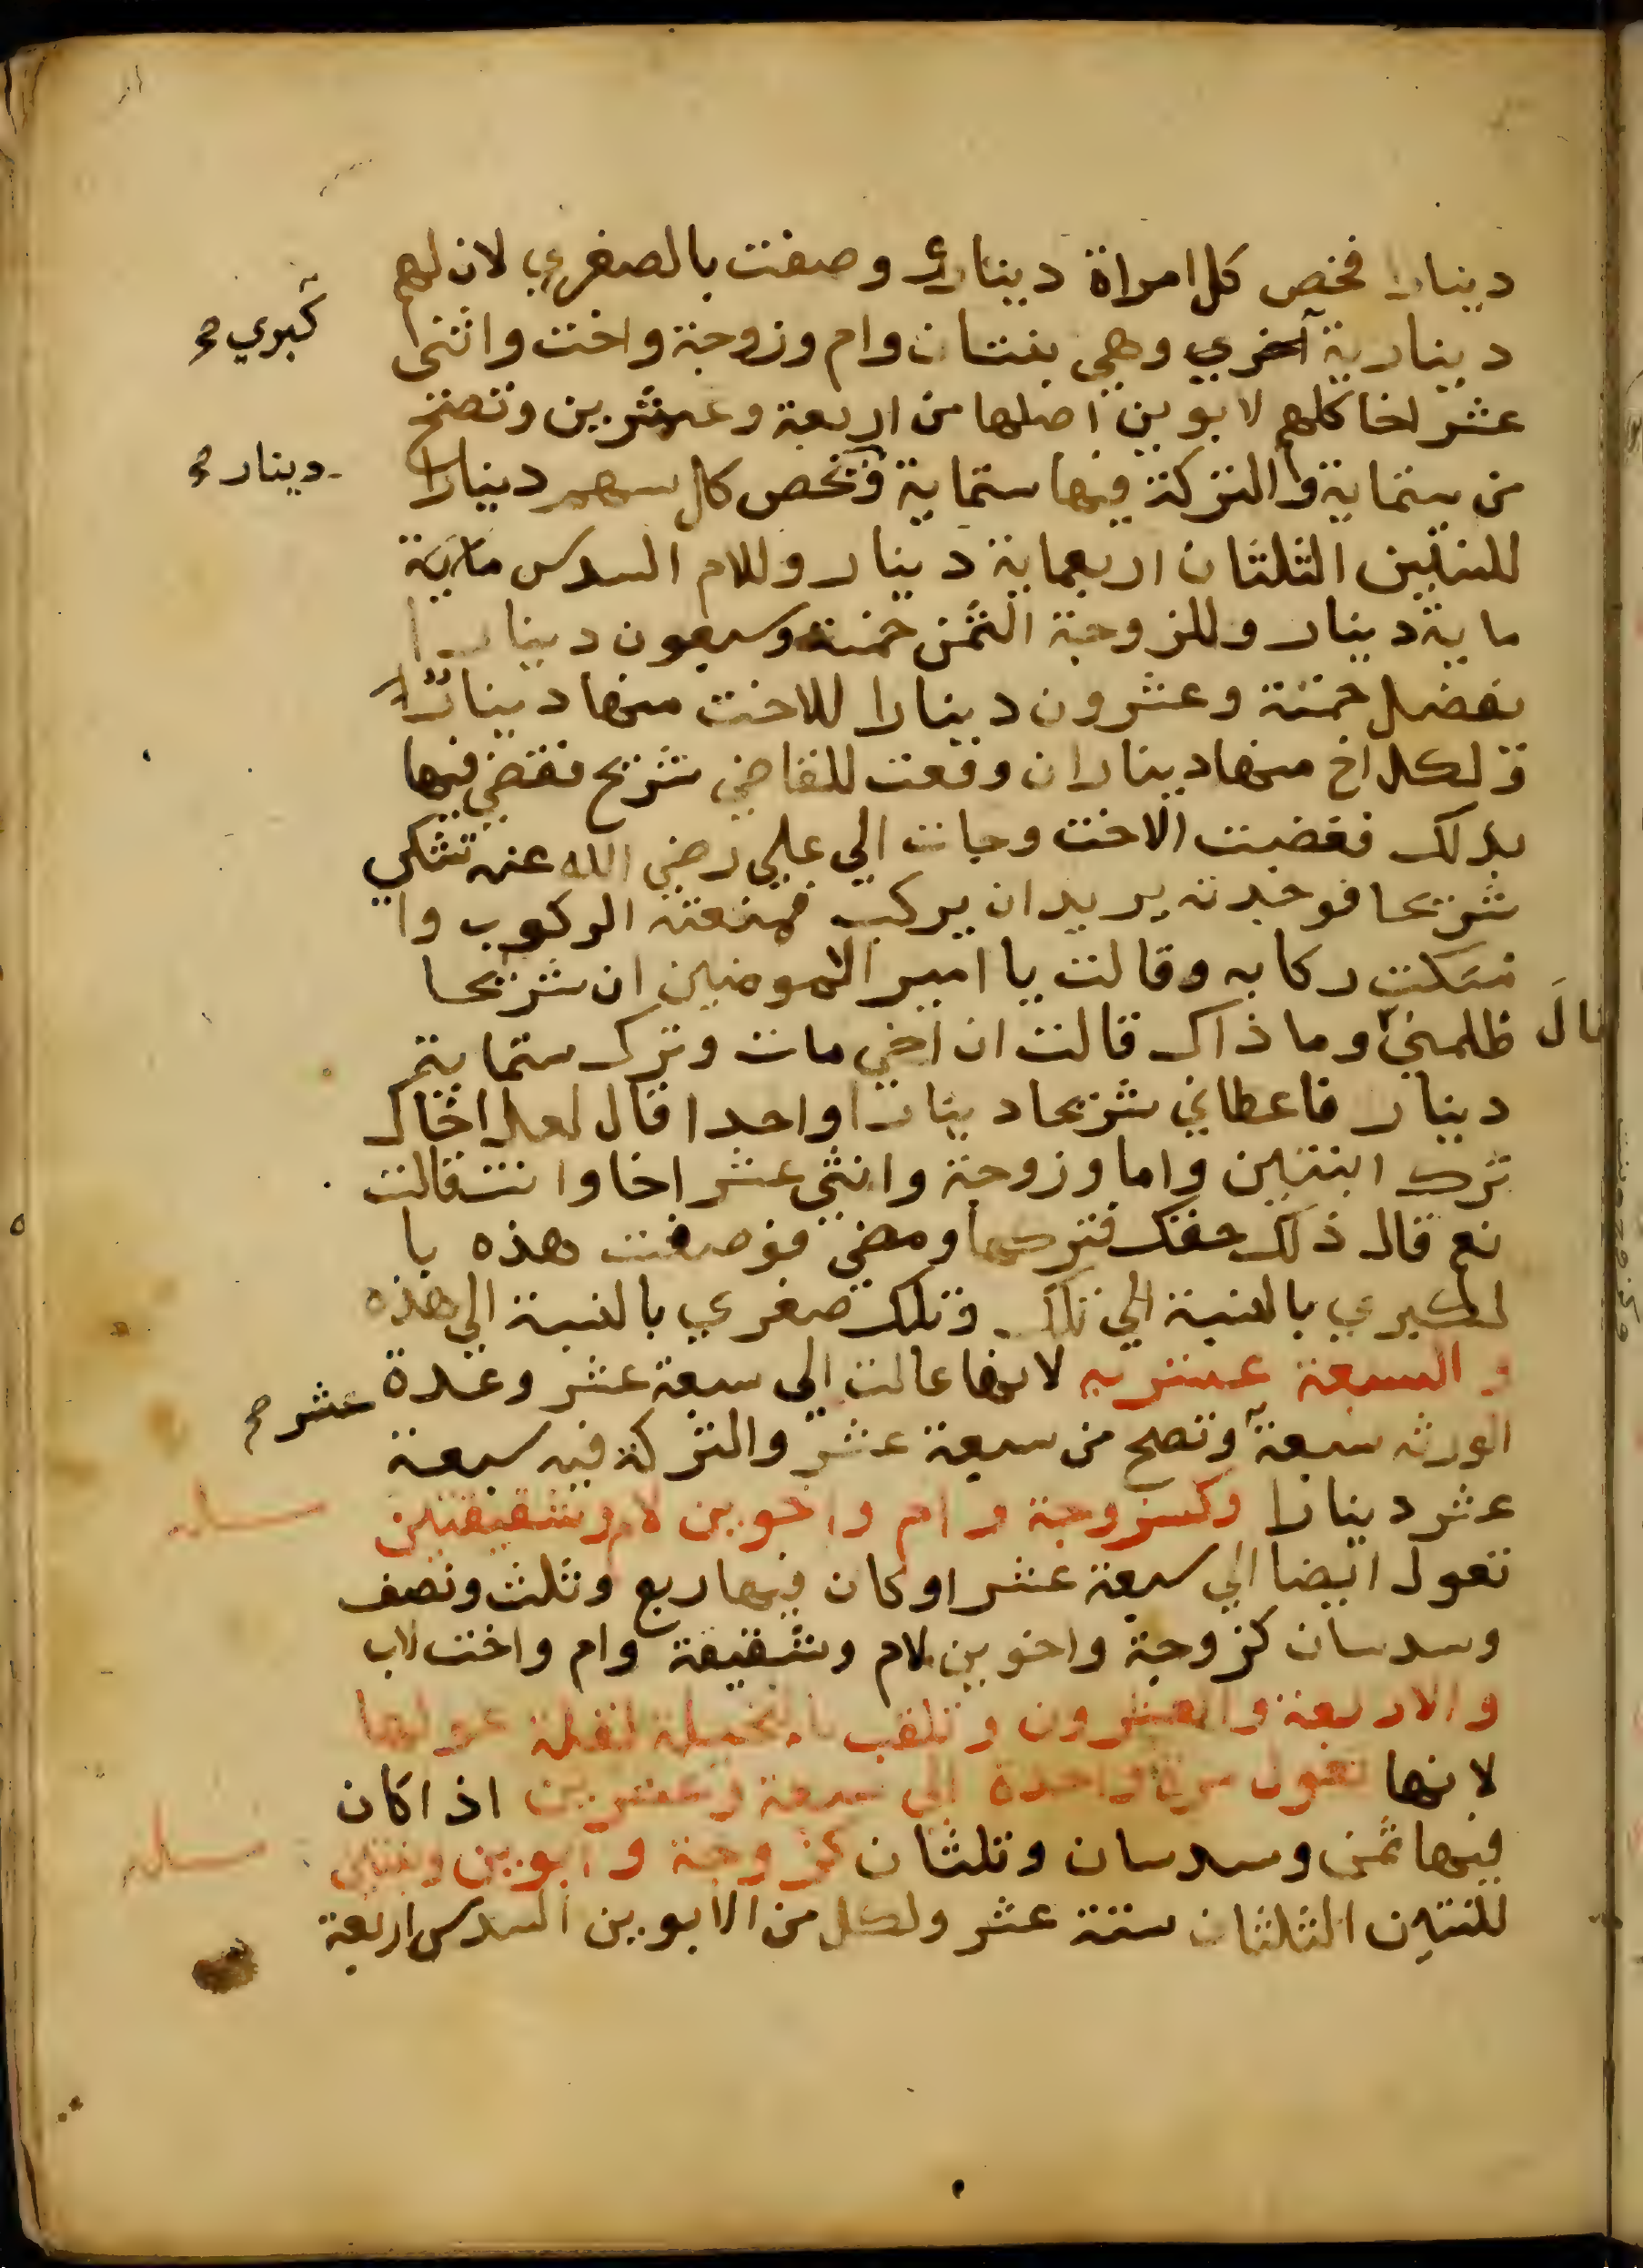 دينارا فخص كل امراة دينارا وصفت بالصغري لان لهم
دينارية آخري وهي بنتان وام وزوجة واخت واثني
كبري صح
عشر اخا كلهم لابوين اصلها من اربعة وعشرين وتصح
من ستماية والتركة فيها ستماية فخص كل سهم دينارا
دينار صح
للبنتين الثلثان اربعماية دينار وللام السدس ماية
ماية دينار وللزوجة الثمن خمسة وسبعون دينارا
يفضل خمسة وعشرون دينارا للاخت منها دينارا
ولكل اخ منها ديناران وقعت للقاضي شريح فقضي فيها
بذلك فغضبت الاخت وجات الي علي رضي الله عنه تشكي
شريحا فوجدته يريد ان يركب فمنعته الركوب وا
مسكت ركابه وقالت يا امير المومنين ان شريحا
ظلمني وما ذاك قالت ان اخي مات وترك ستماية
قال
دينار فاعطاني شريحا دينارا واحدا قال لعل اخاك
ترك ابنتين واما وزوجة واثني عشر اخا وانت قالت
نعم قال ذلك حقك فتركها ومضي فوصفت هذه با
لكبري بالنسبة الي تلك وتلك صغري بالنسبة الي هذه
والسبعة عشريه لانها عالت الي سبعة عشر وعدة
الورثه سبعة وتصح من سبعة عشر والتركة فيه سبعة
عشر صح
عشر دينارا وكزوجة وام واخوين لام وشقيقتين
مسله
تعول ايضا الي سبعة عشر او كان فيها ربع وثلث ونصف
وسدسان كزوجة واخوين لام وشقيقة وام واخت لاب
والاربعة والعشرون وتلقب بالبخيلة لقلة عولها
لانها تعول مرة واحدة الي سبعة وعشرين اذا كان
فيها ثمن وسدسان وثلثان كزوجة وابوين وبنتين
مسله
للبنتين الثلثان ستة عشر ولكل من الابوين السدس اربعة